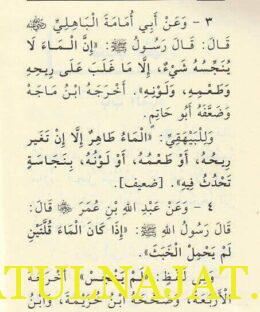 ٣ - وَعَنْ أَبِي أُمَامَةَ الْبَاهِلِيِّ ﷺ
قَالَ: قَالَ رَسُولُ ﷺ: «إِنَّ الْمَاءَ لَا
يُنَجِّسُهُ شَيْءٌ، إِلَّا مَا غَلَبَ عَلَى رِيحِهِ
وَطَعْمِهِ، وَلَوْنِهِ». أَخْرَجَهُ ابْنُ مَاجَهْ
وَضَعَّفَهُ أَبُو حَاتِمٍ.
وَلِلْبَيْهَقِيِّ: «الْمَاءُ طَاهِرٌ إِلَّا إِنْ تَغَيَّرَ
رِيحُهُ، أَوْ طَعْمُهُ، أَوْ لَوْنُهُ، بِنَجَاسَةٍ
تَحْدُثُ فِيهِ». [ضعيف].
٤ - وَعَنْ عَبْدِ اللَّهِ بْنِ عُمَرَ قَالَ:
قَالَ رَسُولُ اللَّهِ ﷺ: «إِذَا كَانَ الْمَاءُ قُلَّتَيْنِ
لَمْ يَحْمِلِ الْخَبَثَ».
وَفِي لَفْظٍ: «لَمْ يَنْجُسْ» أَخْرَجَهُ
الْأَرْبَعَةُ، وَصَحَّحَهُ ابْنُ خُزَيْمَةَ، وَابْنُ
ATULNAJAT.